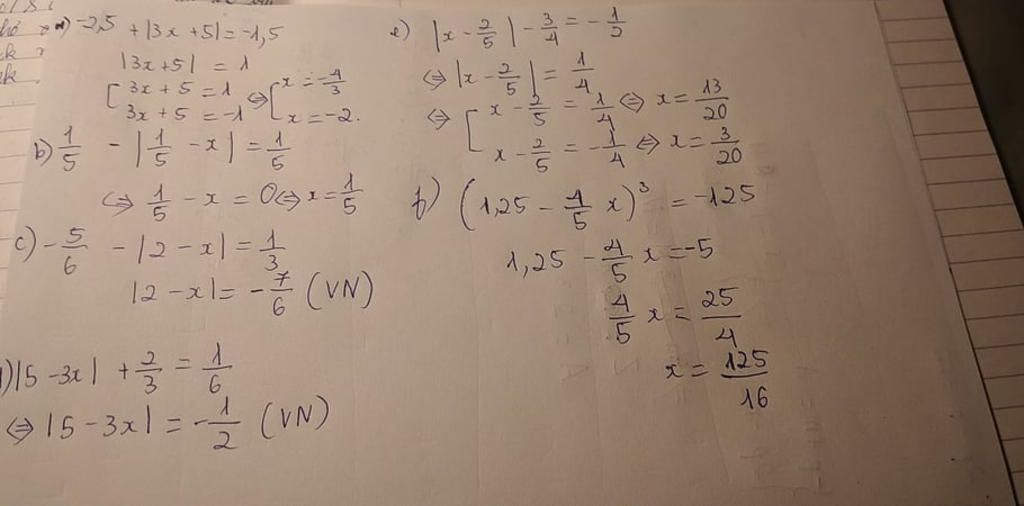 a) -2,5 + |3x + 5| = -1,5
|3x + 5| = 1
[ 3x + 5 = 1 ⇔ [ x = -4/3
3x + 5 = -1 x = -2.
b) 1/5 - |1/5 - x| = 1/5
⇔ 1/5 - x = 0 ⇔ x = 1/5
c) -5/6 - |2 - x| = 1/3
|2 - x| = -7/6 (VN)
) |5 - 3x| + 2/3 = 1/6
⇔ |5 - 3x| = -1/2 (VN)
e) |x - 2/5| - 3/4 = -1/2
⇔ |x - 2/5| = 1/4
⇔ [ x - 2/5 = 1/4 ⇔ x = 13/20
x - 2/5 = -1/4 ⇔ x = 3/20
f) (1,25 - 4/5 x)³ = -125
1,25 - 4/5 x = -5
4/5 x = 25/4
x = 125/16